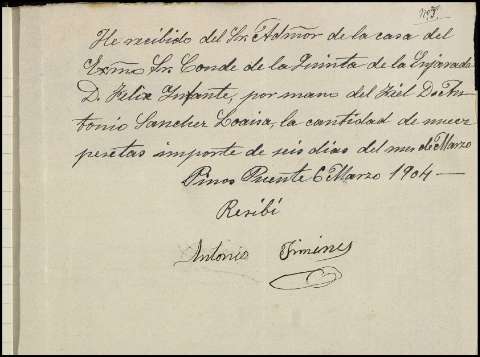 nº 8.
He recibido del Sr. Admor de la casa del
Exmo Sr. Conde de la Quinta de la Enjarada
D. Felix Infante, por mano del Fiel D. An-
tonio Sanchez Loaisa, la cantidad de nueve
pesetas importe de seis dias del mes de Marzo
Pinos Puente 6 Marzo 1904 —
Recibí
Antonio Jimenez